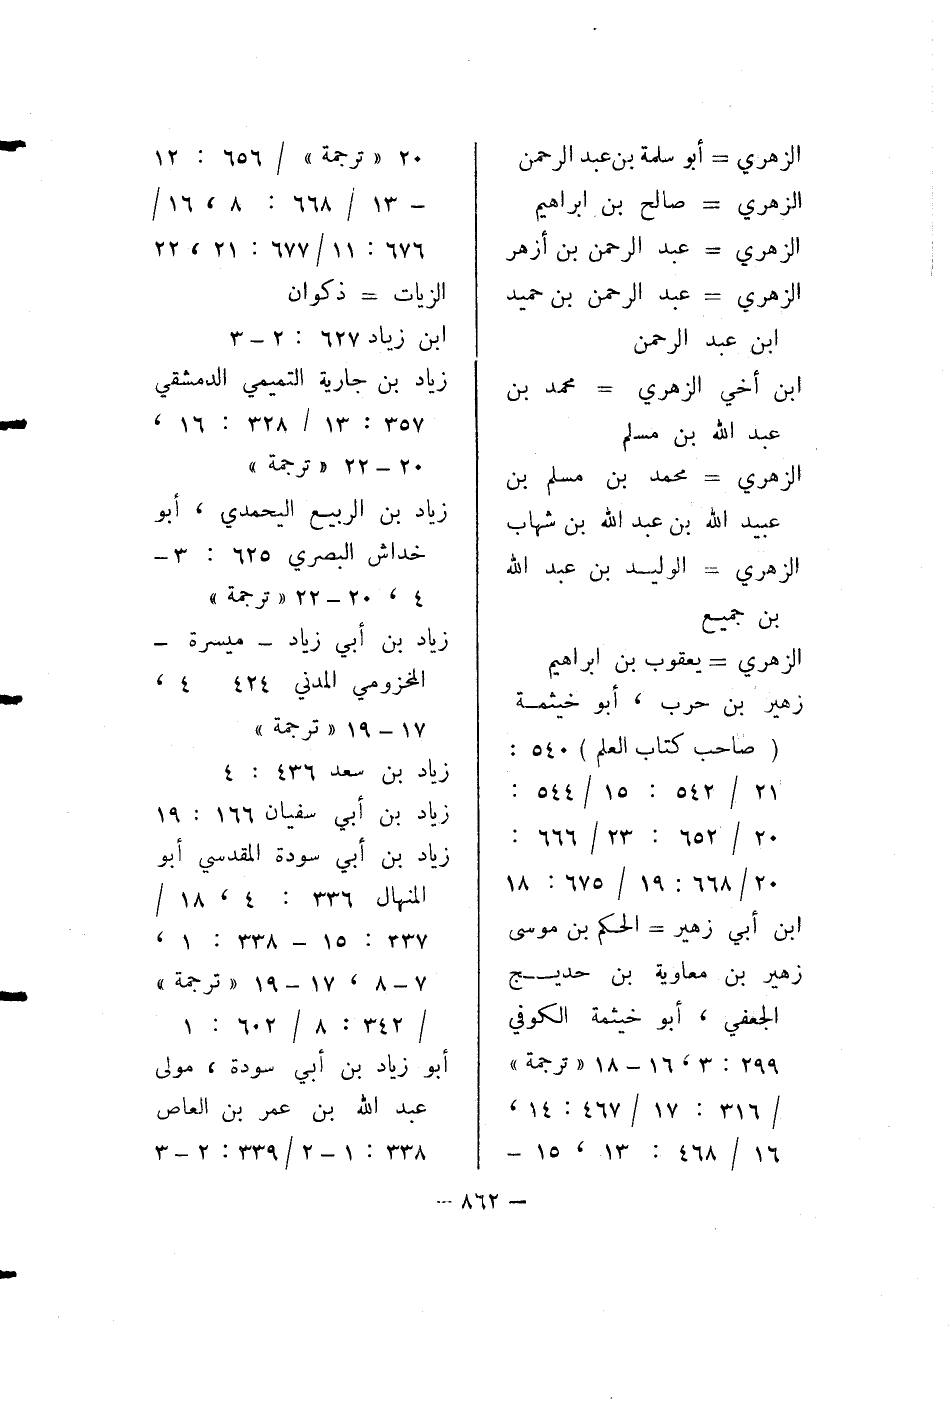 الزهري = أبو سلمة بن عبد الرحمن
الزهري = صالح بن ابراهيم
الزهري = عبد الرحمن بن أزهر
الزهري = عبد الرحمن بن حميد
ابن عبد الرحمن
ابن أخي الزهري = محمد بن
عبد الله بن مسلم
الزهري = محمد بن مسلم بن
عبيد الله بن عبد الله بن شهاب
الزهري = الوليد بن عبد الله
بن جميع
الزهري = يعقوب بن ابراهيم
زهير بن حرب ، أبو خيثمة
( صاحب كتاب العلم ) ٥٤٠ :
٢١ / ٥٤٢ : ١٥ / ٥٤٤ :
٢٠ / ٦٥٢ : ٢٣ / ٦٦٦ :
٢٠ / ٦٦٨ : ١٩ / ٦٧٥ : ١٨
ابن أبي زهير = الحكم بن موسى
زهير بن معاوية بن حديج
الجعفي ، أبو خيثمة الكوفي
٢٩٩ : ٣ ، ١٦ – ١٨ « ترجمة »
/ ٣١٦ : ١٧ / ٤٦٧ : ١٤ ،
١٦ / ٤٦٨ : ١٣ ، ١٥ –
٢٠ « ترجمة » / ٦٥٦ : ١٢
– ١٣ / ٦٦٨ : ٨ ، ١٦ /
٦٧٦ : ١١ / ٦٧٧ : ٢١ ، ٢٢
الزيات = ذكوان
ابن زياد ٦٢٧ : ٢ – ٣
زياد بن جارية التميمي الدمشقي
٣٥٧ : ١٣ / ٣٢٨ : ١٦ ،
٢٠ – ٢٢ « ترجمة »
زياد بن الربيع اليحمدي ، أبو
خداش البصري ٦٢٥ : ٣ –
٤ ، ٢٠ – ٢٢ « ترجمة »
زياد بن أبي زياد – ميسرة –
المخزومي المدني ٤٢٤ ٤ ،
١٧ – ١٩ « ترجمة »
زياد بن سعد ٤٣٦ : ٤
زياد بن أبي سفيان ١٦٦ : ١٩
زياد بن أبي سودة المقدسي أبو
المنهال ٣٣٦ : ٤ ، ١٨ /
٣٣٧ : ١٥ – ٣٣٨ : ١ ،
٧ – ٨ ، ١٧ – ١٩ « ترجمة »
/ ٣٤٢ : ٨ / ٦٠٢ : ١
أبو زياد بن أبي سودة ، مولى
عبد الله بن عمر بن العاص
٣٣٨ : ١ – ٢ / ٣٣٩ : ٢ – ٣
– ٨٦٢ –